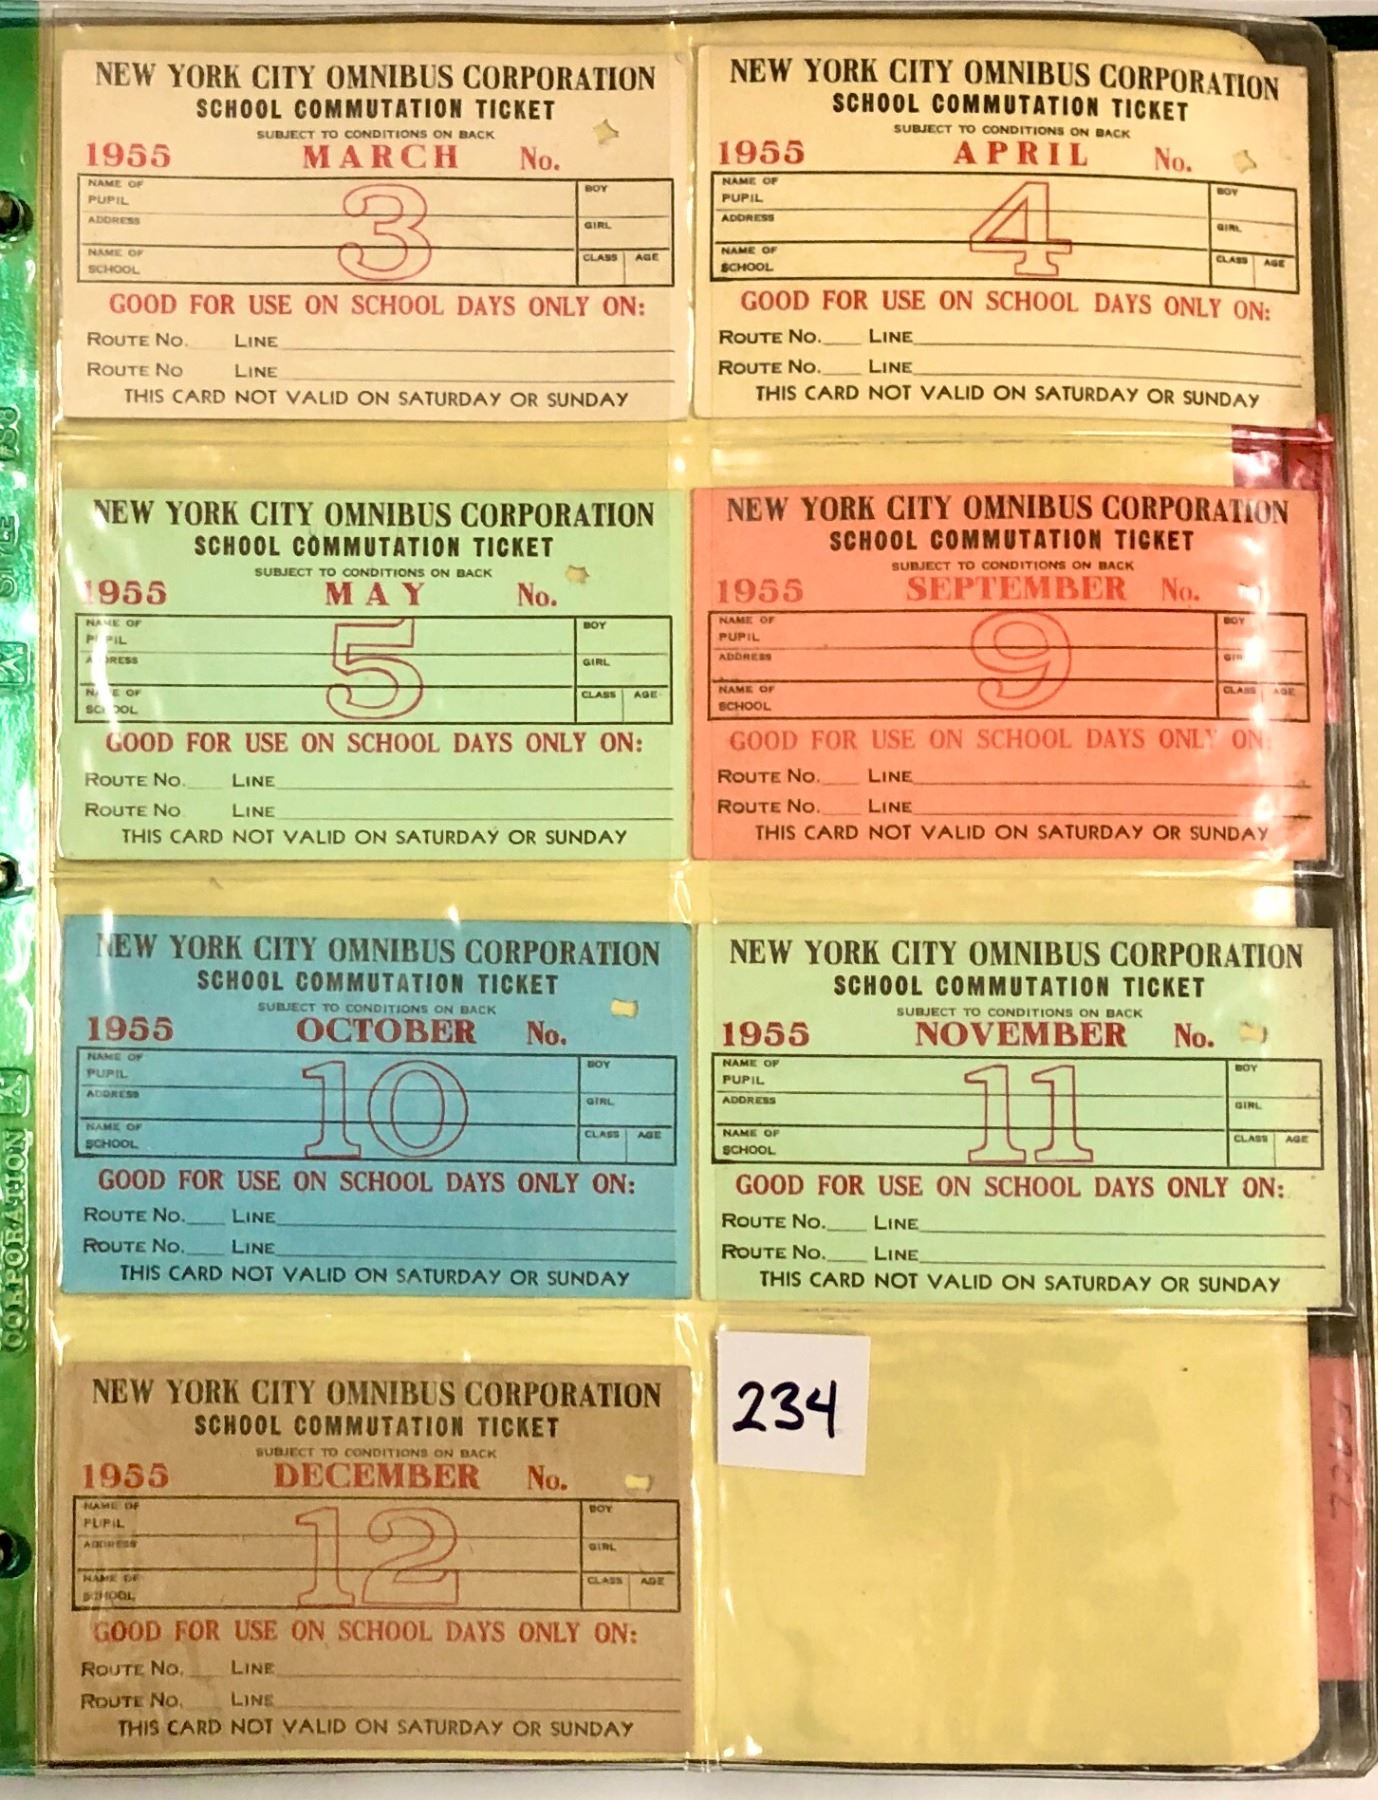 NEW YORK CITY OMNIBUS CORPORATION
SCHOOL COMMUTATION TICKET
SUBJECT TO CONDITIONS ON BACK
1955 MARCH No.
NAME OF PUPIL
BOY
ADDRESS
GIRL
NAME OF SCHOOL
CLASS AGE
3
GOOD FOR USE ON SCHOOL DAYS ONLY ON:
ROUTE NO. LINE
ROUTE NO LINE
THIS CARD NOT VALID ON SATURDAY OR SUNDAY
NEW YORK CITY OMNIBUS CORPORATION
SCHOOL COMMUTATION TICKET
SUBJECT TO CONDITIONS ON BACK
1955 APRIL No.
NAME OF PUPIL
BOY
ADDRESS
GIRL
NAME OF SCHOOL
CLASS AGE
4
GOOD FOR USE ON SCHOOL DAYS ONLY ON:
ROUTE NO. LINE
ROUTE NO. LINE
THIS CARD NOT VALID ON SATURDAY OR SUNDAY
NEW YORK CITY OMNIBUS CORPORATION
SCHOOL COMMUTATION TICKET
SUBJECT TO CONDITIONS ON BACK
1955 MAY No.
NAME OF PUPIL
BOY
ADDRESS
GIRL
NAME OF SCHOOL
CLASS AGE
5
GOOD FOR USE ON SCHOOL DAYS ONLY ON:
ROUTE NO. LINE
ROUTE NO LINE
THIS CARD NOT VALID ON SATURDAY OR SUNDAY
NEW YORK CITY OMNIBUS CORPORATION
SCHOOL COMMUTATION TICKET
SUBJECT TO CONDITIONS ON BACK
1955 SEPTEMBER No.
NAME OF PUPIL
BOY
ADDRESS
GIRL
NAME OF SCHOOL
CLASS AGE
9
GOOD FOR USE ON SCHOOL DAYS ONLY ON:
ROUTE NO. LINE
ROUTE NO. LINE
THIS CARD NOT VALID ON SATURDAY OR SUNDAY
NEW YORK CITY OMNIBUS CORPORATION
SCHOOL COMMUTATION TICKET
SUBJECT TO CONDITIONS ON BACK
1955 OCTOBER No.
NAME OF PUPIL
BOY
ADDRESS
GIRL
NAME OF SCHOOL
CLASS AGE
10
GOOD FOR USE ON SCHOOL DAYS ONLY ON:
ROUTE NO. LINE
ROUTE NO. LINE
THIS CARD NOT VALID ON SATURDAY OR SUNDAY
NEW YORK CITY OMNIBUS CORPORATION
SCHOOL COMMUTATION TICKET
SUBJECT TO CONDITIONS ON BACK
1955 NOVEMBER No.
NAME OF PUPIL
BOY
ADDRESS
GIRL
NAME OF SCHOOL
CLASS AGE
11
GOOD FOR USE ON SCHOOL DAYS ONLY ON:
ROUTE NO. LINE
ROUTE NO. LINE
THIS CARD NOT VALID ON SATURDAY OR SUNDAY
NEW YORK CITY OMNIBUS CORPORATION
SCHOOL COMMUTATION TICKET
SUBJECT TO CONDITIONS ON BACK
1955 DECEMBER No.
NAME OF PUPIL
BOY
ADDRESS
GIRL
NAME OF SCHOOL
CLASS AGE
12
GOOD FOR USE ON SCHOOL DAYS ONLY ON:
ROUTE NO. LINE
ROUTE NO. LINE
THIS CARD NOT VALID ON SATURDAY OR SUNDAY
234
CORPORATION